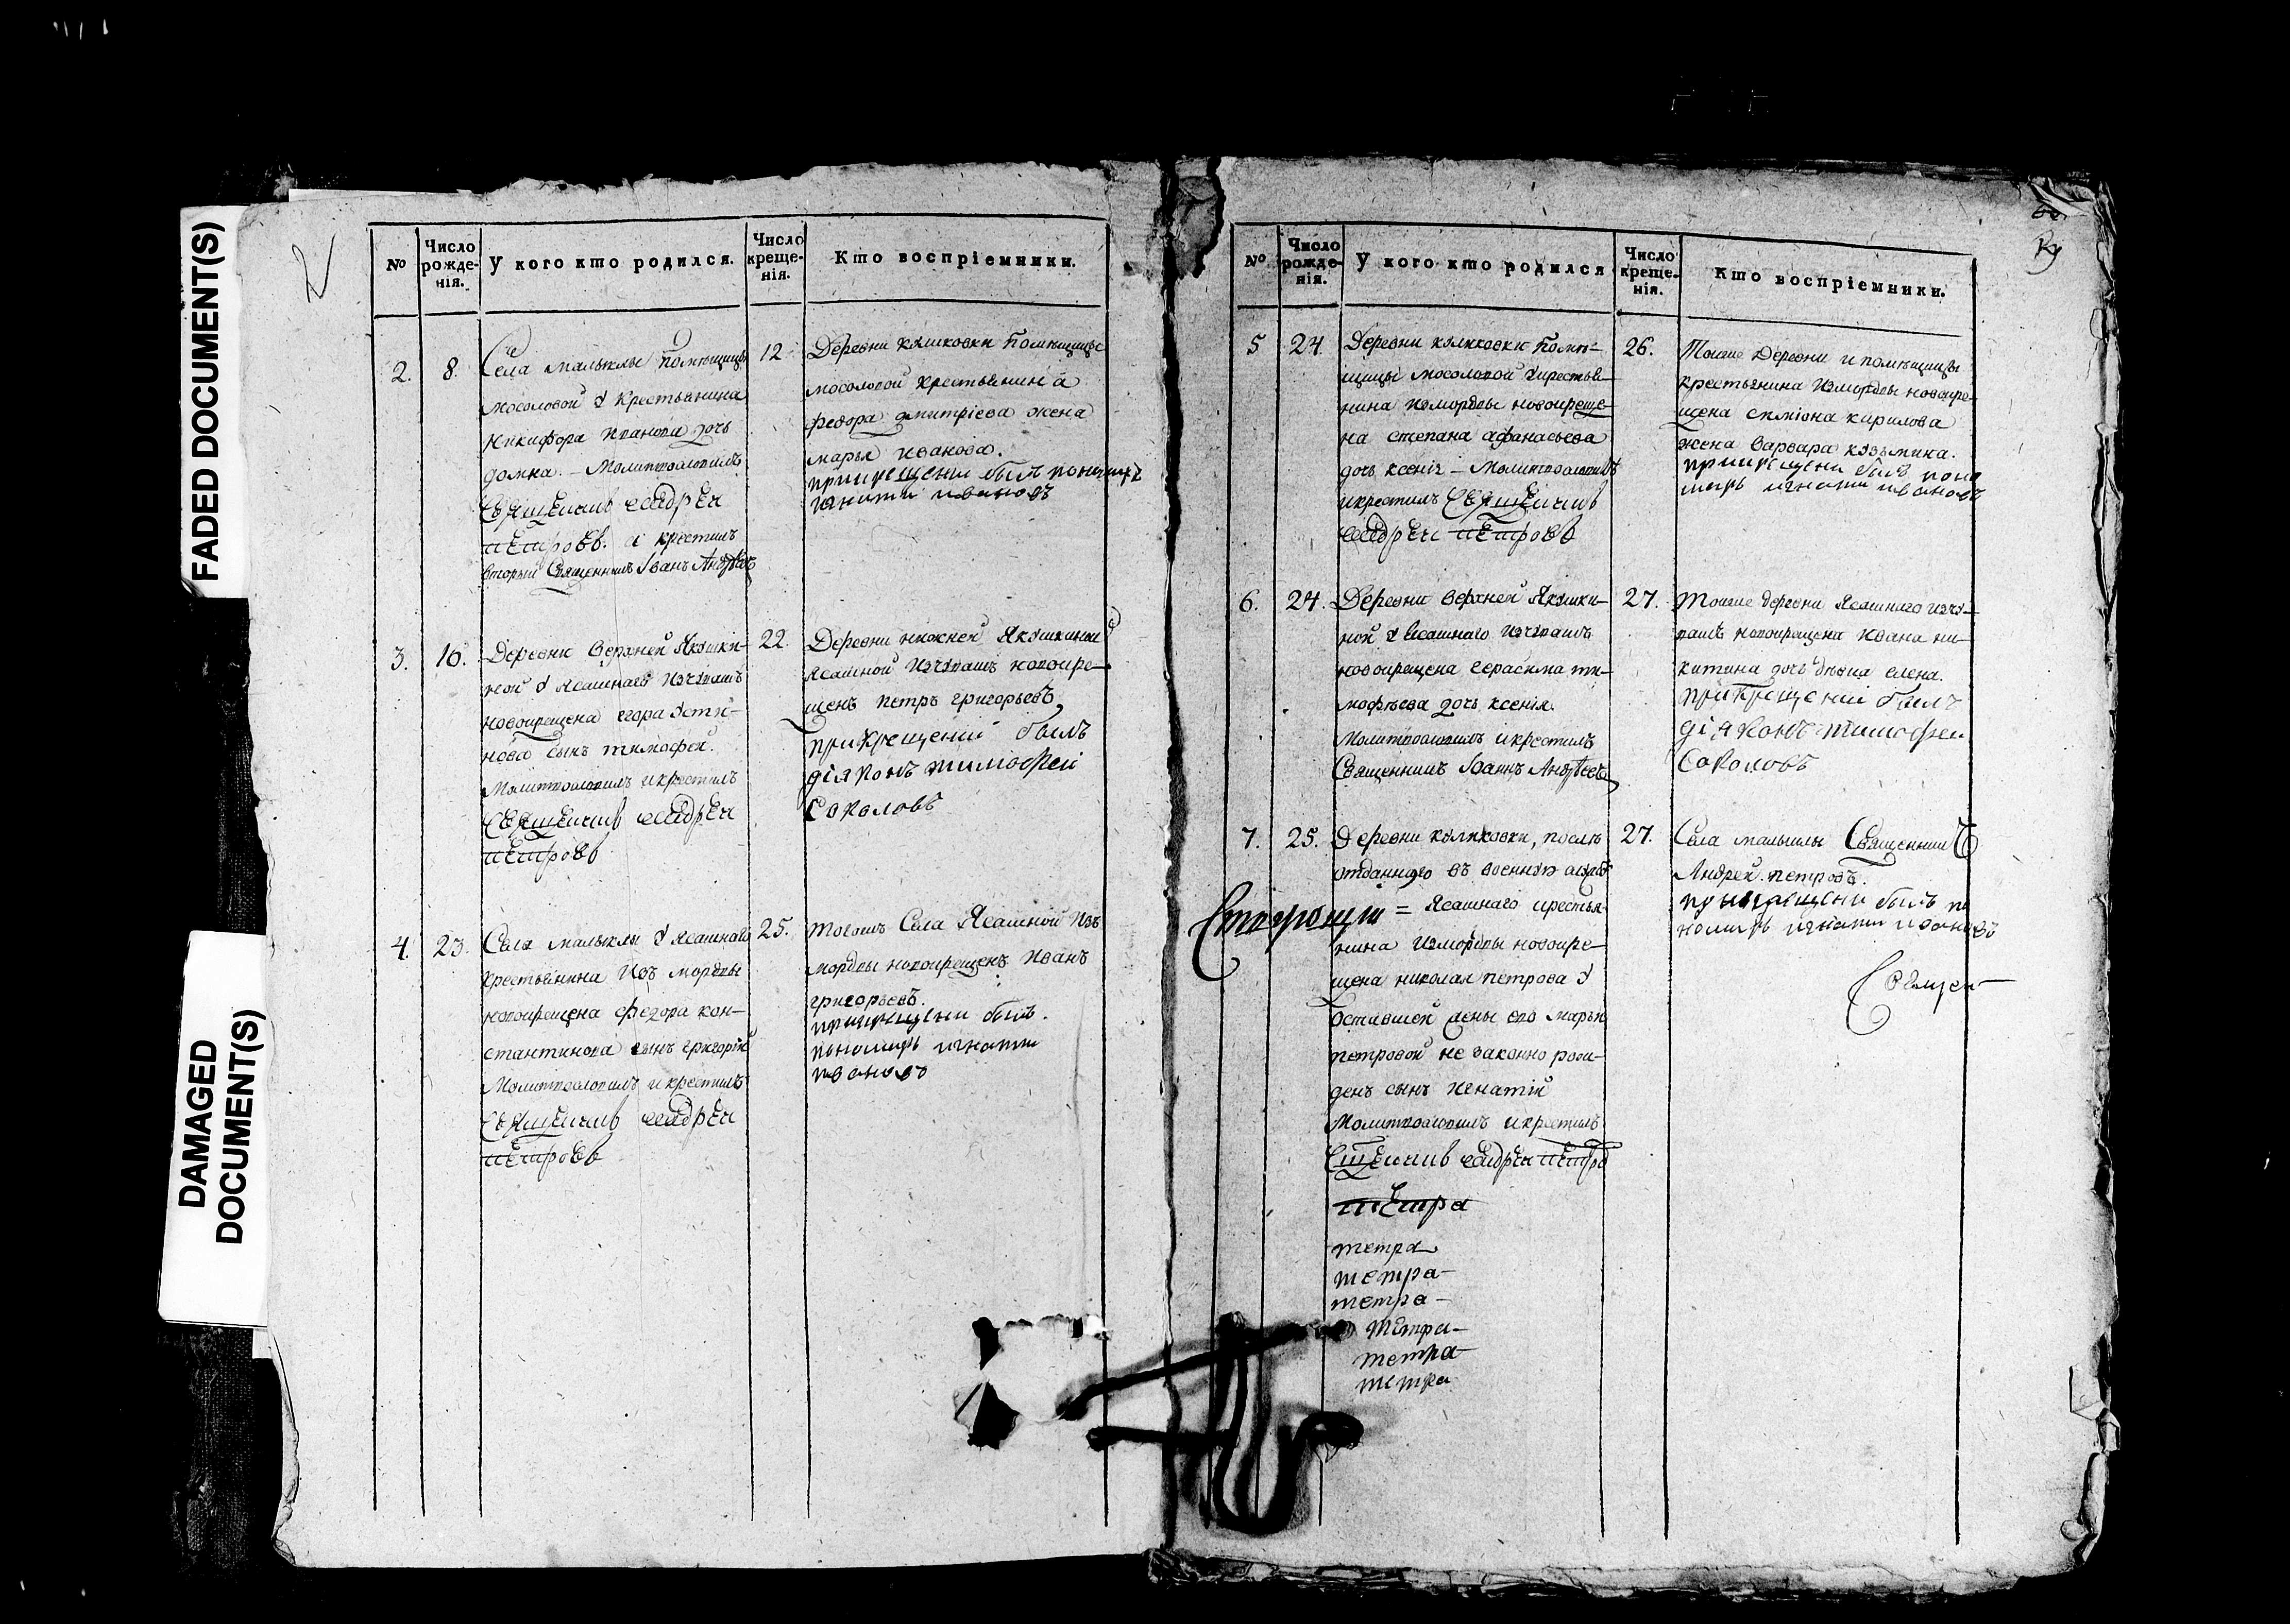 FADED DOCUMENT(S)
DAMAGED
DOCUMENT(S)
№
Число рожде-нія.
У кого кто родился.
Число креще-нія.
Кто воспріемники.
2.
8.
Села малыклы помѣщицы
мосоловой У крестьянина
никифора иванова дочь
домна. – Молитвословилъ
Священникъ андрей
петровъ. а крестилъ
вторый Священникъ Іванъ Андрѣевъ
12
Деревни кулиховки помѣщицы
мосоловой крестьянина
федора дмитрієва жена
марья иванова.
прикрещени былъ пономарь
игнати ивановъ
3.
10.
Деревни верхней Якушки-
ной У Ясашнаго изчувашъ
новокрещена егора Усти-
нова сынъ тимофей.
Молитвословилъ и крестилъ
Священникъ андрей
петровъ
22.
Деревни нижней Якушкиной
Ясашной изчувашъ новокре-
щенъ петръ григорьевъ,
прикрещеніи былъ
діяконъ тимофей
Соколовъ
4.
23.
Села малыклы У Ясашнаго
крестьянина изъ мордвы
новокрещена федора кон-
стантинова сынъ григорій
Молитвословилъ и крестилъ
Священникъ андрей
петровъ
25.
тогожъ Села Ясашной изъ
мордвы новокрещенъ иванъ
григорьевъ.
прикрещени былъ.
пономарь игнати
ивановъ
№
Число рожде-нія.
У кого кто родился
Число креще-нія.
Кто воспріемники.
5
24.
Деревни кулиховки помѣ-
щицы мосоловой Укрестья-
нина измордвы новокреще-
на степана афанасьева
дочь ксенія – Молитвословилъ
икрестилъ Священникъ
андрей петровъ
26.
Тояже Деревни и помѣщицы
крестьянина измордвы новокре-
щена симіона кирилова
жена варвара кузьмина.
прикрещени былъ поно
марь игнати ивановъ
6.
24.
Деревни верхней Якушки-
ной У Ясашнаго изчувашъ
новокрещена герасима ти-
мофѣева дочь ксенія.
Молитвословилъ икрестилъ
Священникъ Іоаннъ Андрѣевъ
27.
тояже деревни Ясашнаго изчу-
вашъ новокрещена ивана ни-
китина дочь дѣвица елена.
прикрещеніи былъ
діяконъ тимофеи
Соколовъ
7.
25.
Деревни кулиховки, послѣ
отданнаго въ военную службу
= Ясашнаго крестья-
нина измордвы новокре-
щена николая петрова У
оставшей жены его марьи
петровой не законно рож-
денъ сынъ игнатій
Молитвословилъ икрестилъ
андрей петро
петра
петра
петра-
петра-
петра-
петра-
петра
27.
Села малыклы Священникъ
Андрей петровъ.
прикрещени былъ по
номарь игнати ивановъ